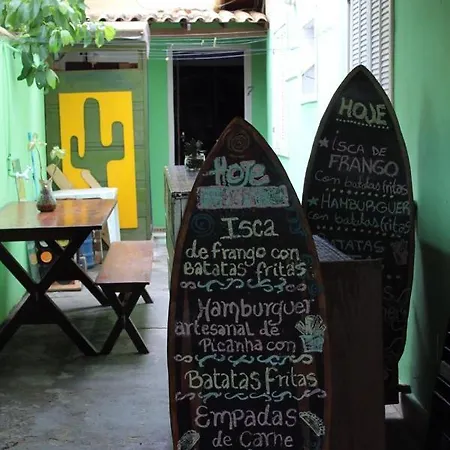 HOJE
ISCA
de frango con
BATATAS fritAS
Hamburguer
artesanal de
Picanha con
Batatas Fritas
Empadas
de Carne
HOJE
ISCA DE
FRANGO
com batatas fritas
HAMBURGUER
com batatas fritas
BATATAS